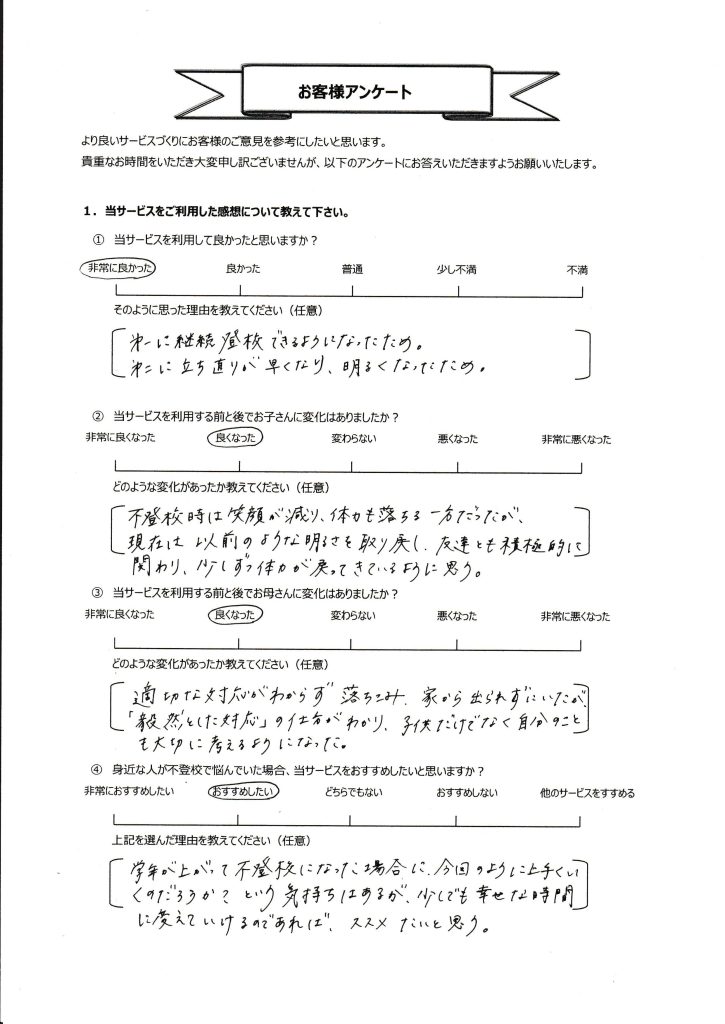 お客様アンケート
より良いサービスづくりにお客様のご意見を参考にしたいと思います。
貴重なお時間をいただき大変申し訳ございませんが、以下のアンケートにお答えいただきますようお願いいたします。
1．当サービスをご利用した感想について教えて下さい。
① 当サービスを利用して良かったと思いますか？
非常に良かった 良かった 普通 少し不満 不満
そのように思った理由を教えてください（任意）
第一に継続登校できるようになったため。
第二に立ち直りが早くなり、明るくなったため。
② 当サービスを利用する前と後でお子さんに変化はありましたか？
非常に良くなった 良くなった 変わらない 悪くなった 非常に悪くなった
どのような変化があったか教えてください（任意）
不登校時は笑顔が減り、体力も落ちる一方だったが、
現在は以前のような明るさを取り戻し、友達とも積極的に
関わり、少しずつ体力が戻ってきているように思う。
③ 当サービスを利用する前と後でお母さんに変化はありましたか？
非常に良くなった 良くなった 変わらない 悪くなった 非常に悪くなった
どのような変化があったか教えてください（任意）
適切な対応がわからず落ちこみ、家から出られずにいたが、
「毅然とした対応」の仕方がわかり、子供だけでなく自分のこと
も大切に考えるようになった。
④ 身近な人が不登校で悩んでいた場合、当サービスをおすすめしたいと思いますか？
非常におすすめしたい おすすめしたい どちらでもない おすすめしない 他のサービスをすすめる
上記を選んだ理由を教えてください（任意）
学年が上がって不登校になった場合に、今回のように上手くい
くのだろうか？という気持ちはあるが、少しでも幸せな時間
に変えていけるのであれば、ススメたいと思う。